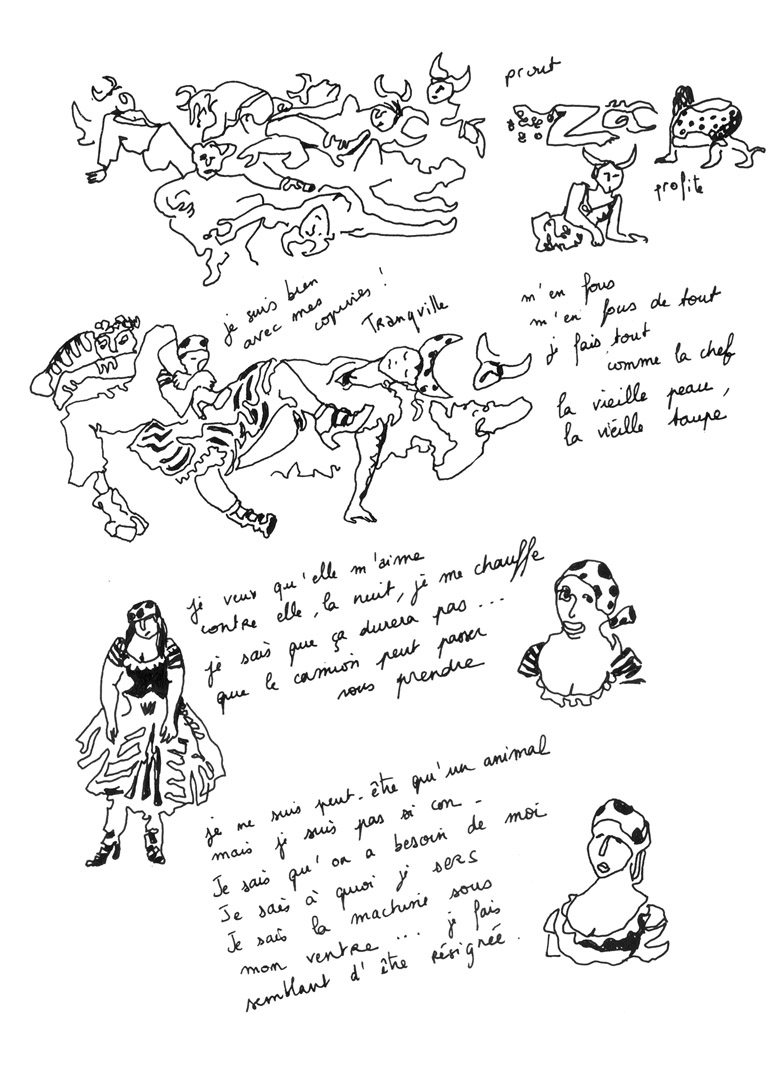 prout
profite
je suis bien
avec mes
copines !
Tranquille
m'en fous
m'en fous de tout
je fais tout
comme la chef
la vieille peau,
la vieille taupe,
je veux qu'elle m'aime
contre elle, la nuit, je me chauffe
je sais que ça durera pas ...
que le camion peut passer
nous prendre
je ne suis peut-être qu'un animal
mais je suis pas si con -
Je sais qu'on a besoin de moi
Je sais à quoi je sers
Je sais la machine sous
mon ventre ... je fais
semblant d'être résignée.